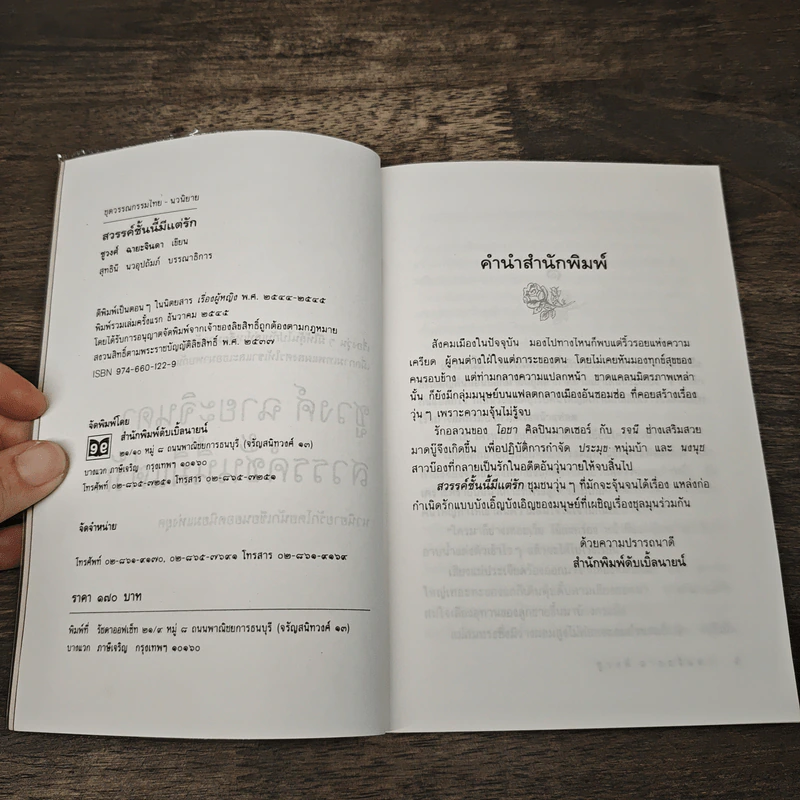 ชุดวรรณกรรมไทย - นวนิยาย
สวรรค์ชั้นนี้มีแต่รัก
ชูวงศ์ ฉายะจินดา เขียน
สุทธินี นวอุปถัมภ์ บรรณาธิการ
ตีพิมพ์เป็นตอนๆ ในนิตยสาร เรื่องผู้หญิง พ.ศ. ๒๕๔๔-๒๕๔๕
พิมพ์รวมเล่มครั้งแรก ธันวาคม ๒๕๔๕
โดยได้รับการอนุญาตจัดพิมพ์จากเจ้าของลิขสิทธิ์ถูกต้องตามกฎหมาย
สงวนสิทธิ์ตามพระราชบัญญัติลิขสิทธิ์ พ.ศ. ๒๕๓๗
ISBN 974-660-122-9
จัดพิมพ์โดย
สำนักพิมพ์ดับเบิ้ลนายน์
๒๑/๑๐ หมู่ ๘ ถนนพาณิชยการธนบุรี (จรัญสนิทวงศ์ ๑๓)
บางแวก ภาษีเจริญ กรุงเทพฯ ๑๐๑๖๐
โทรศัพท์ ๐๒-๘๖๕-๗๒๕๑ โทรสาร ๐๒-๘๖๕-๗๒๕๑
จัดจำหน่าย
โทรศัพท์ ๐๒-๘๖๑-๙๑๗๐, ๐๒-๘๖๕-๗๖๙๑ โทรสาร ๐๒-๘๖๑-๙๑๖๙
ราคา ๑๗๐ บาท
พิมพ์ที่ รัชดาออฟเซ็ท ๒๑/๙ หมู่ ๘ ถนนพาณิชยการธนบุรี (จรัญสนิทวงศ์ ๑๓)
บางแวก ภาษีเจริญ กรุงเทพฯ ๑๐๑๖๐
คำนำสำนักพิมพ์
สังคมเมืองในปัจจุบัน มองไปทางไหนก็พบแต่ริ้วรอยแห่งความ
เครียด ผู้คนต่างใฝ่ใจแต่ภาระของตน โดยไม่เคยหันมองทุกข์สุขของ
คนรอบข้าง แต่ท่ามกลางความแปลกหน้า ขาดแคลนมิตรภาพเหล่า
นั้น ก็ยังมีกลุ่มมนุษย์บนแฟลตกลางเมืองอันซอมซ่อ ที่คอยสร้างเรื่อง
วุ่นๆ เพราะความจุ้นไม่รู้จบ
รักอลวนของ โอชา ศิลปินมาดเซอร์ กับ รจนี ช่างเสริมสวย
มาดบู๊จึงเกิดขึ้น เพื่อปฏิบัติการกำจัด ประมุข หนุ่มบ้า และ นงนุช
สาวป๋องที่กลายเป็นรักในอดีตอันวุ่นวายให้จบสิ้นไป
สวรรค์ชั้นนี้มีแต่รัก ชุมชนวุ่นๆ ที่มักจะจุ้นจนได้เรื่อง แหล่งก่อ
กำเนิดรักแบบบังเอิ๊ญบังเอิญของมนุษย์ที่เผชิญเรื่องชุลมุนร่วมกัน
ด้วยความปรารถนาดี
สำนักพิมพ์ดับเบิ้ลนายน์